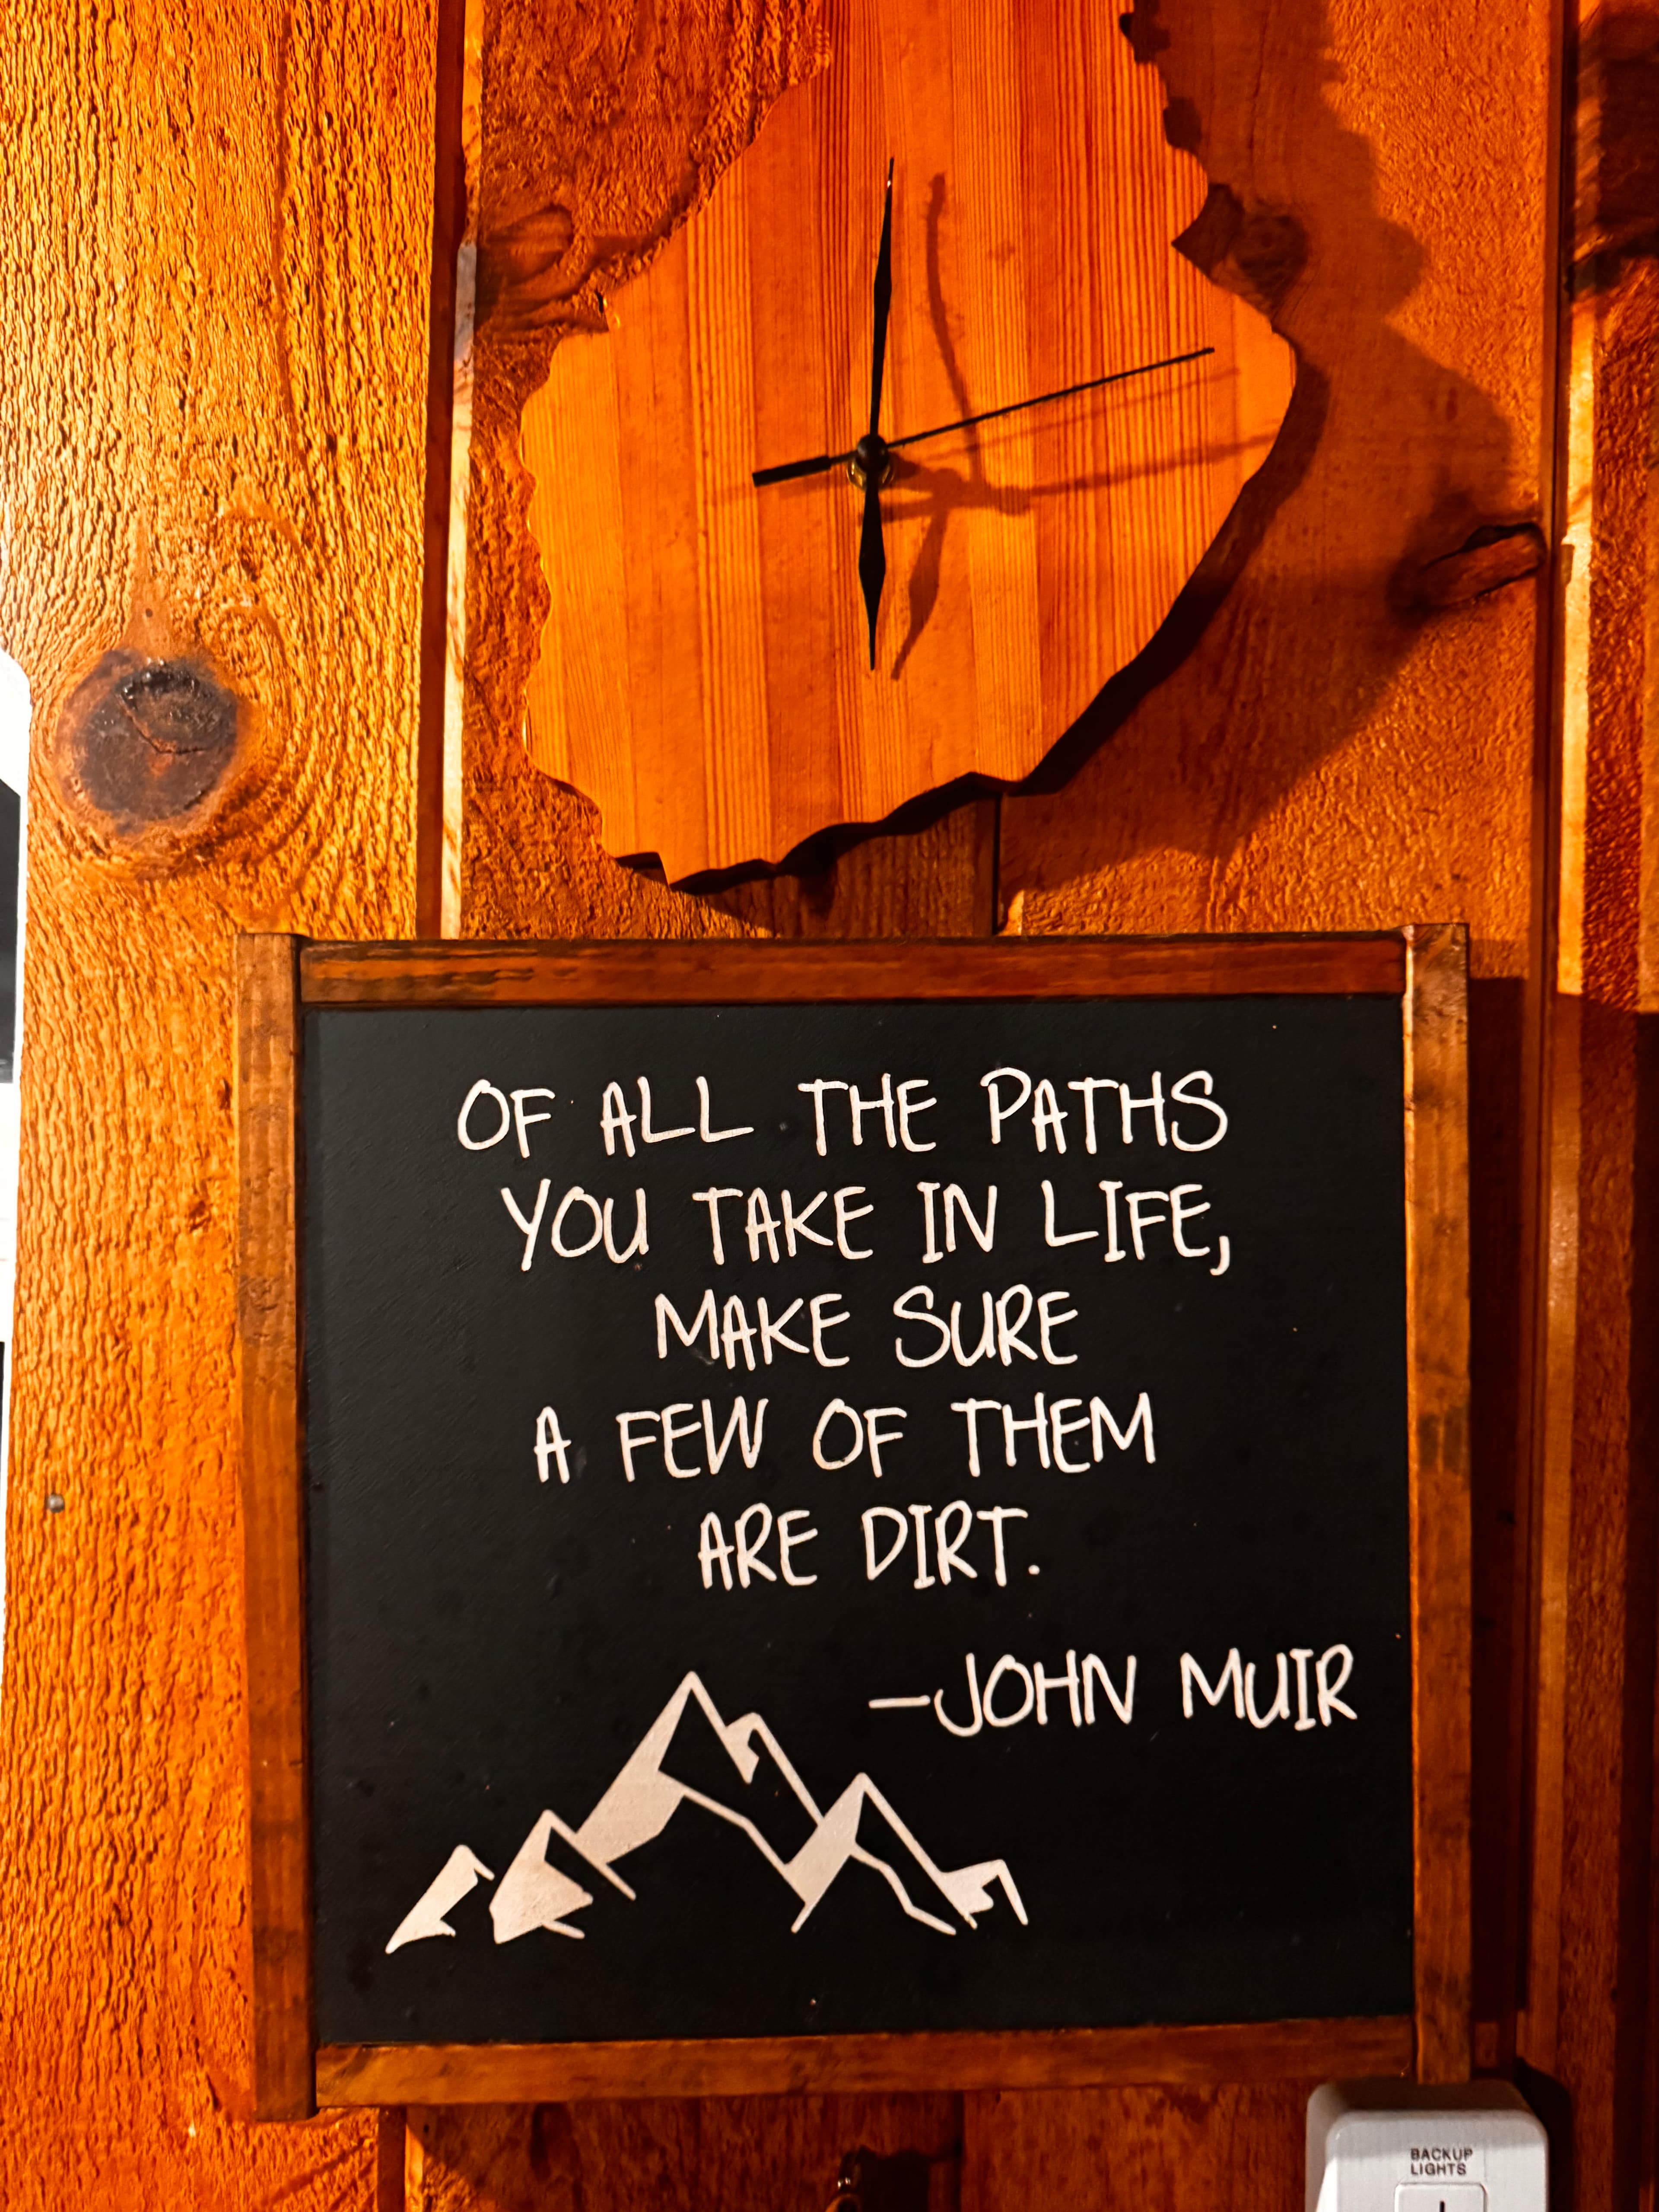 OF ALL THE PATHS
YOU TAKE IN LIFE,
MAKE SURE
A FEW OF THEM
ARE DIRT.
–JOHN MUIR
BACKUP
LIGHTS